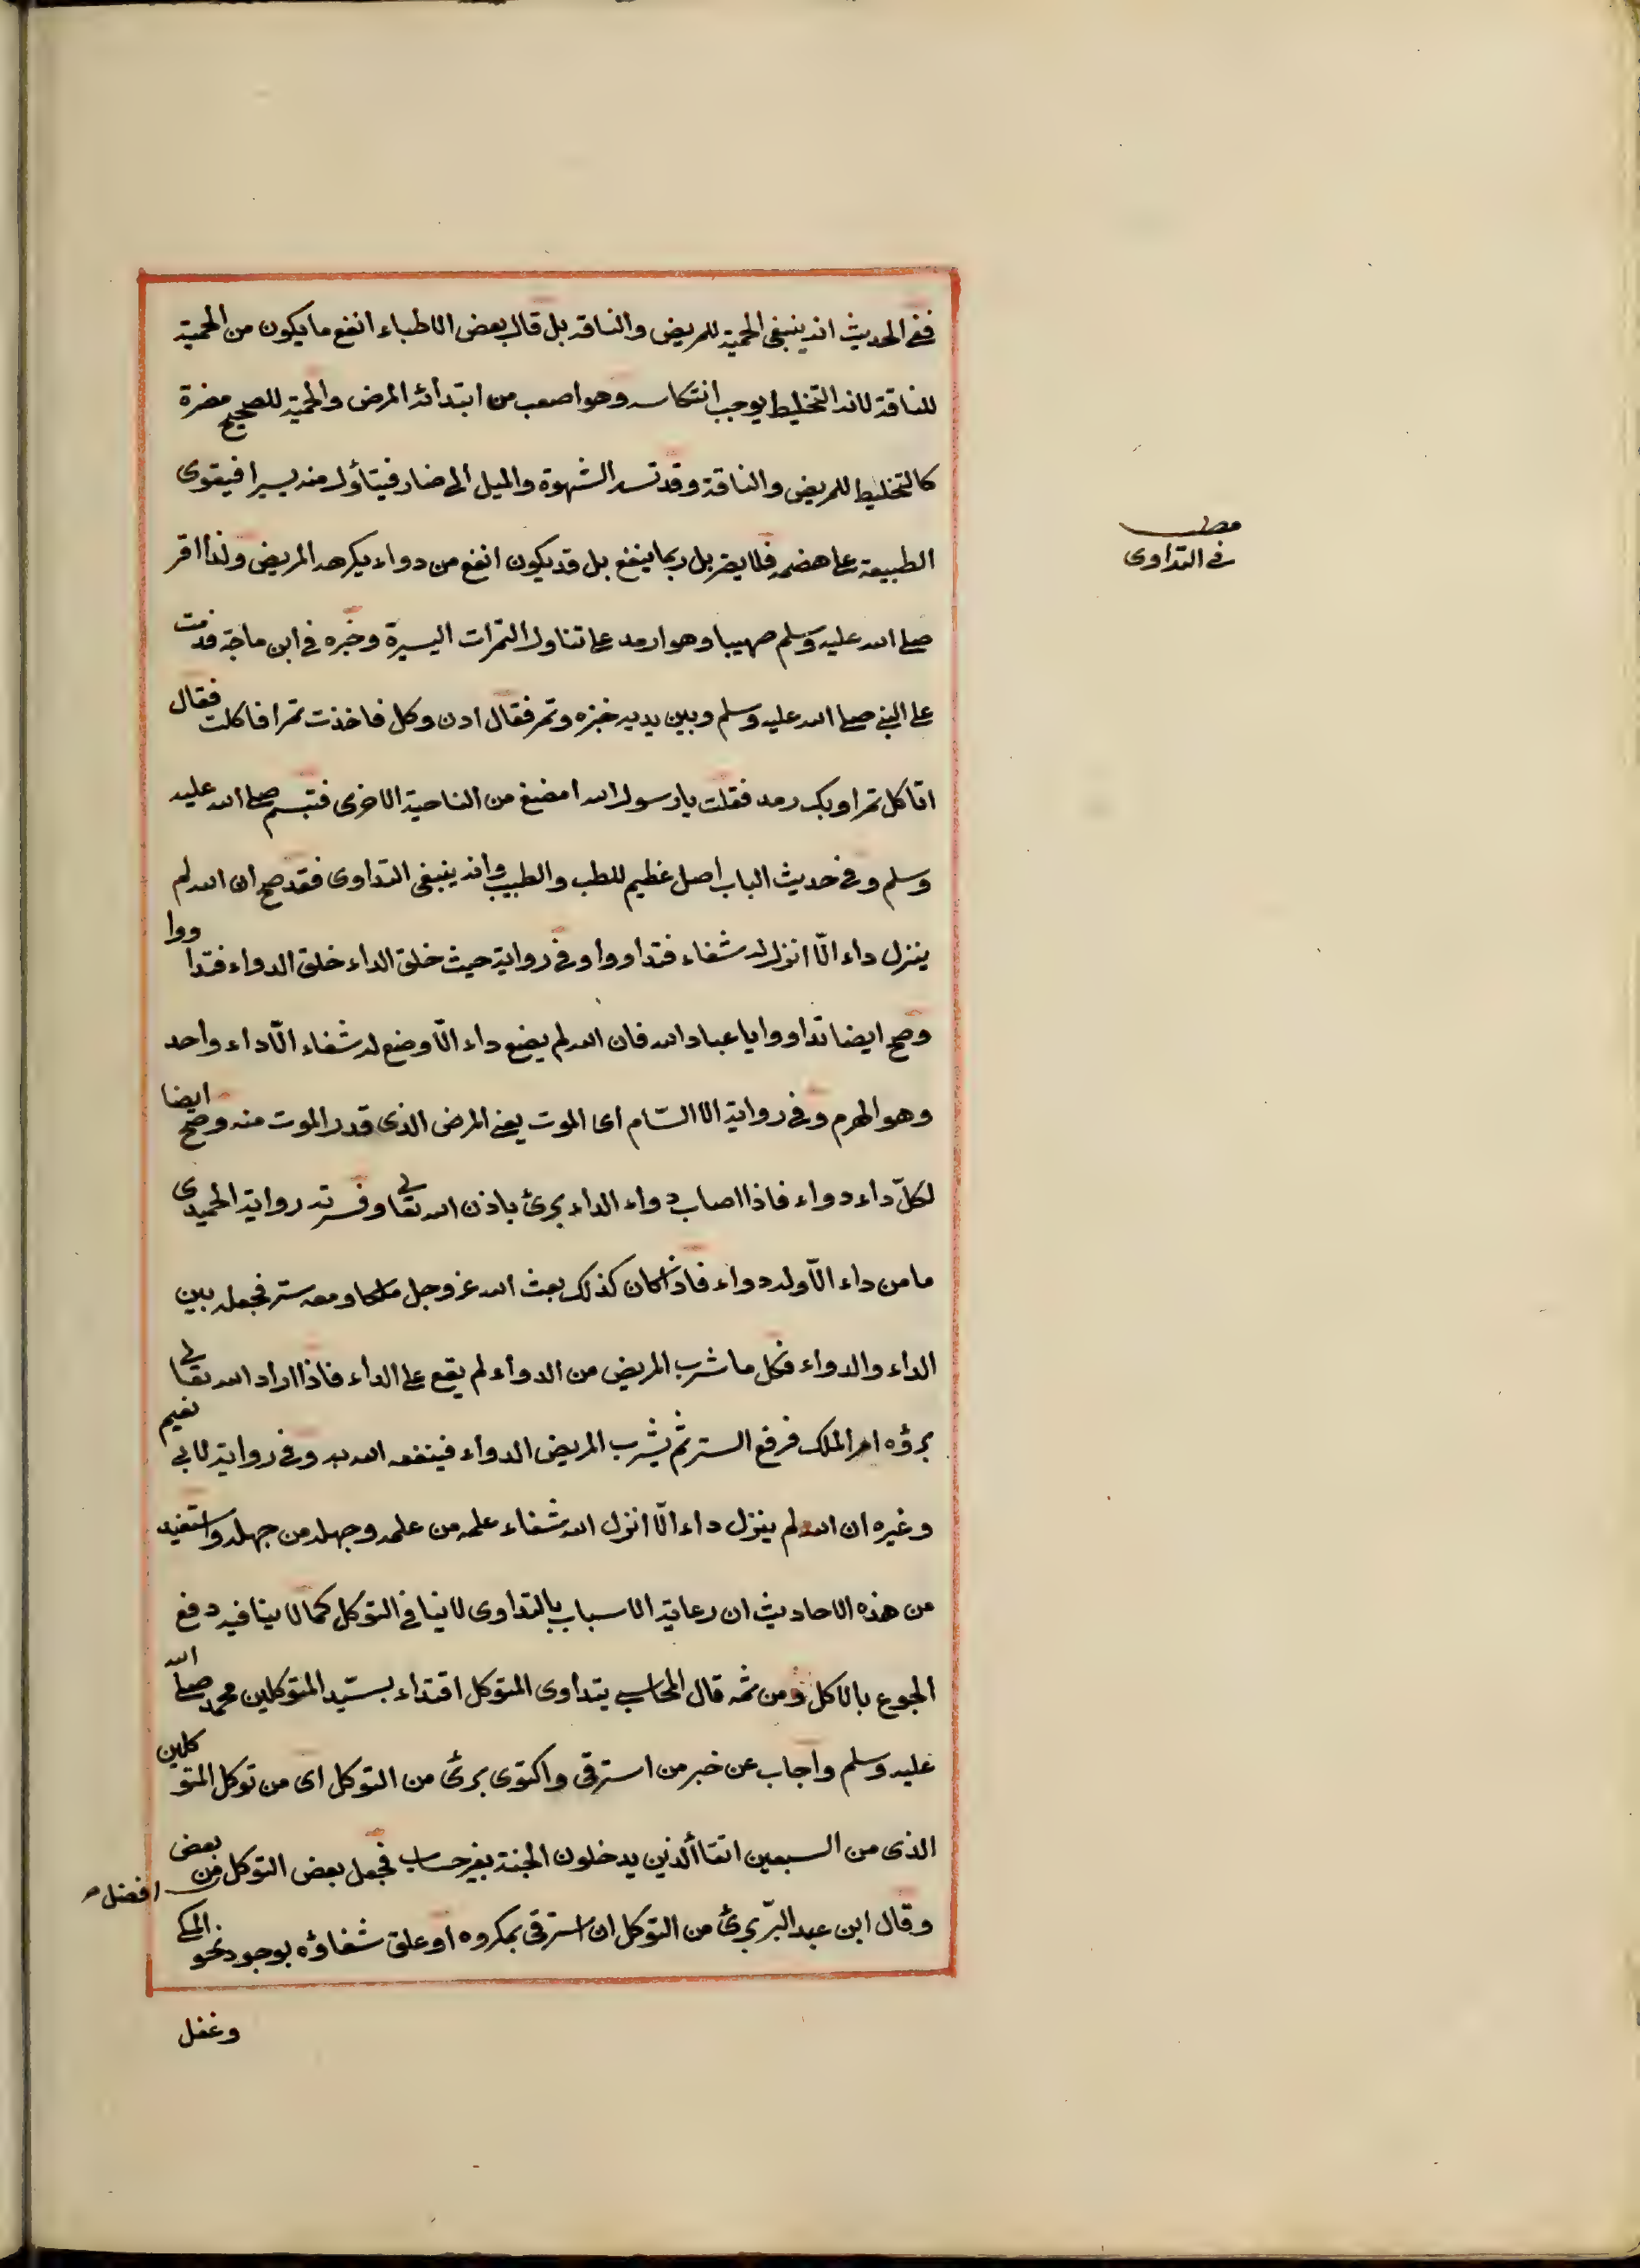 ففى الحديث انه ينبغى الحمية للمريض والناقه بل قال بعض الاطباء انفع ما يكون من الحمية
للناقة لانه التخليط يوجب انتكاسه وهو اصعب من ابتدائه المرض والحمية للصحيح مضرة
كالتخليط للمريض والناقة وقد تسد الشهوة والميل الى ضار فيتأول منه يسيرا فيقوى
مطلب
فى التداوى
الطبيعة على هضمه فلا يضر بل ربما ينفع بل قد يكون انفع من دواء يكرهه المريض ولذا اقر
صلى الله عليه وسلم صهيبا وهو ارمد على تناول التمرات اليسيرة وخبره فى ابن ماجة قدمت
على النبى صلى الله عليه وسلم وبين يديه خبزه وتمر فقال ادن وكل فاخذت تمرا فاكلت فقال
اتاكل تمرا وبك رمد فقلت يا رسول الله امضغ من الناحية الاخرى فتبسم صلى الله عليه
وسلم وفى حديث الباب اصل عظيم للطب والطبيب وانه ينبغى التداوى فقد صح ان الله لم
ينزل داء الّا انزل له شفاء فتداووا وفى رواية حيث خلق الداء خلق الدواء فتداووا
وصح ايضا تداووا يا عباد الله فان الله لم يضع داء الّا وضع له شفاء الّا داء واحد
وهو الهرم وفى رواية الا السّام اى الموت يعنى المرض الذى قدر الموت منه وصح ايضا
لكلّ داء دواء فاذا اصاب دواء الداء برئ باذن الله تعالى وفسرته رواية الحميدى
ما من داء الّا وله دواء فاذا كان كذلك بعث الله عز وجل ملكا ومعه ستر فجعله بين
الداء والدواء فكل ما شرب المريض من الدواء لم يقع على الداء فاذا اراد الله تعالى
برؤه امر الملك فرفع الستر ثم يشرب المريض الدواء فينفعه الله به وفى رواية لابى نعيم
وغيره ان الله لم ينزل داء الّا انزل الله شفاء علمه من علمه وجهله من جهله واستفيد
من هذه الاحاديث ان رعاية الاسباب بالتداوى لا ينافى التوكل كما لا ينافيه دفع
الجوع بالاكل ومن ثمه قال المحاسبى يتداوى المتوكل اقتداء بسيّد المتوكلين محمد صلى الله
عليه وسلم واجاب عن خبر من استرقى واكتوى برئ من التوكل اى من توكل المتوكلين
الذى من السبعين الفا الذين يدخلون الجنة بغير حساب فجعل بعض التوكل افضل من بعض
وقال ابن عبد البرّ برئ من التوكل ان استرقى بمكروه او علق شفاؤه بوجود نحو الكى
وغفل